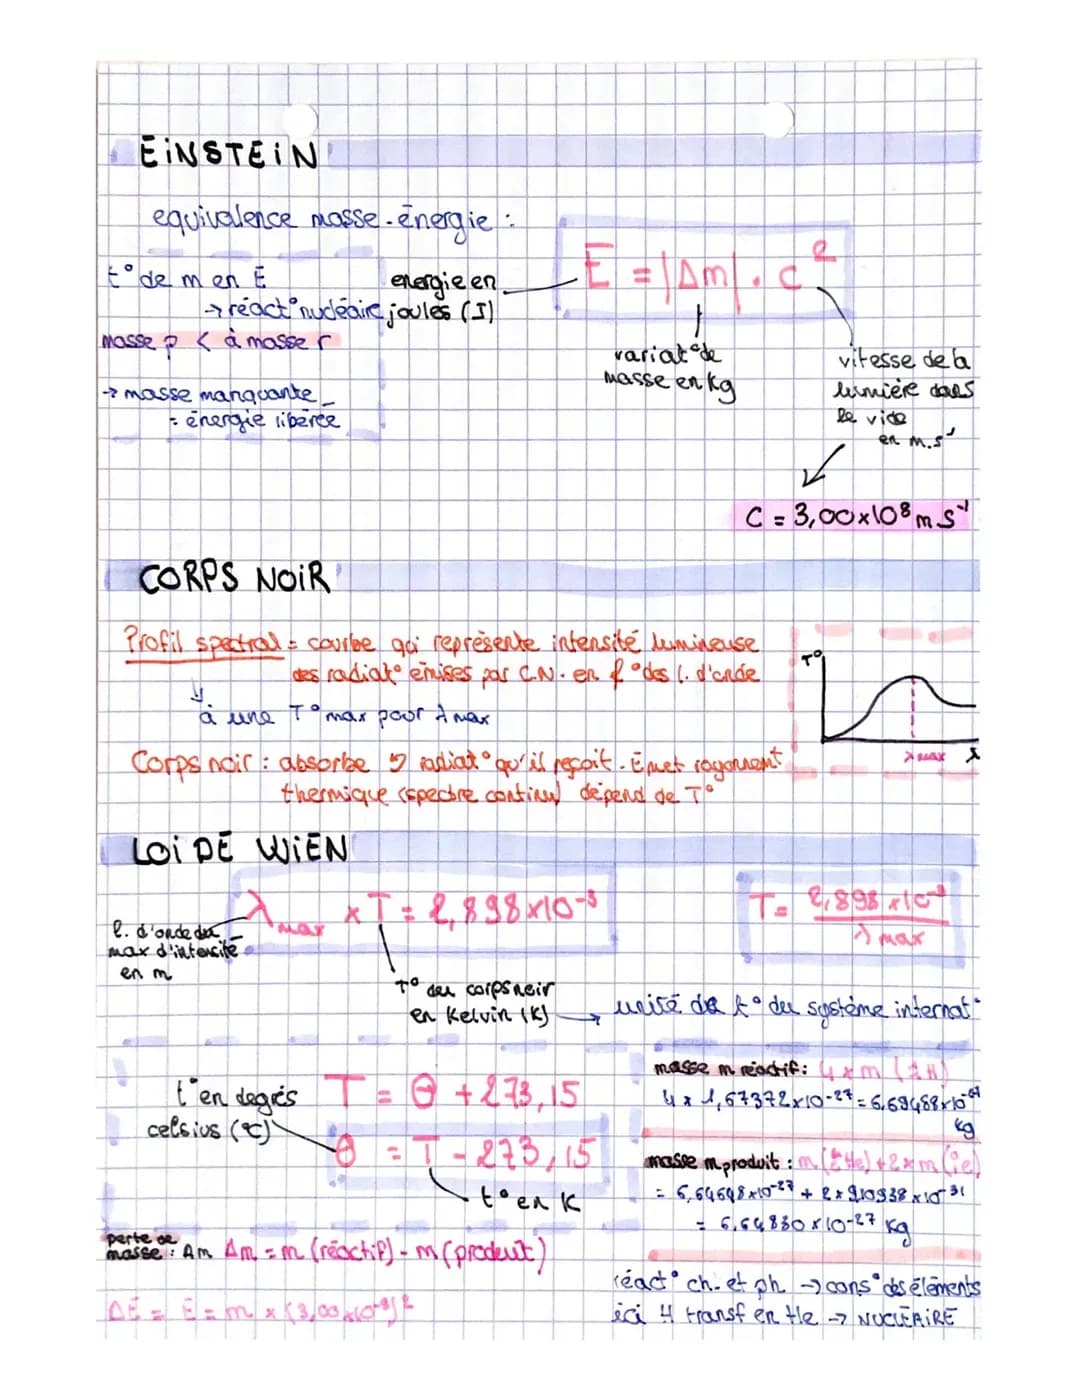 EINSTEIN
equivalence masse-énergie :
E = |Δm| . c²
t° de m en E
→ réact° nucléaire
masse p < à masse r
→ masse manquante
= énergie libérée
energie en
joules (J)
variat° de
masse en kg
vitesse de la
lumière dans
le vide
en m.s⁻¹
C = 3,00x10⁸ m s⁻¹
CORPS NOIR
Profil spectral = courbe qui représente intensité lumineuse
des radiat° émises par C.N. en f° des l. d'onde
à une T° max pour λ max
T°
λ max
λ
Corps noir : absorbe radiat° qu'il reçoit. Émet rayonnement
thermique (spectre continu) dépend de T°
LOI DE WIEN
λ max x T = 2,898x10⁻³
T = 2,898 x10⁻³
λ max
l. d'onde du
max d'intensité
en m
T° du corps noir
en Kelvin (K)
→ unité de t° du système internat°
t° en degrés
celsius (°C)
T = θ + 273,15
θ = T - 273,15
t° en K
masse m réactif : 4 x m (¹₁H)
4 x 1,67372x10⁻²⁷ = 6,69488x10⁻²⁷
kg
masse m produit : m (⁴₂He) + 2 x m (⁰₁e)
= 6,64648x10⁻²⁷ + 2 x 9,10938 x10⁻³¹
= 6,64830 x 10⁻²⁷ kg
perte de
masse : Δm Δm = m (réactif) - m (produit)
ΔE = E = m x (3,00x10⁻⁸)²
réact° ch. et ph. → cons° des éléments
ici H transf en He → NUCLÉAIRE